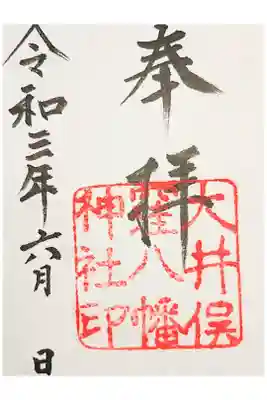 奉拝
大井俣
窪八幡
神社印
令和三年六月 日